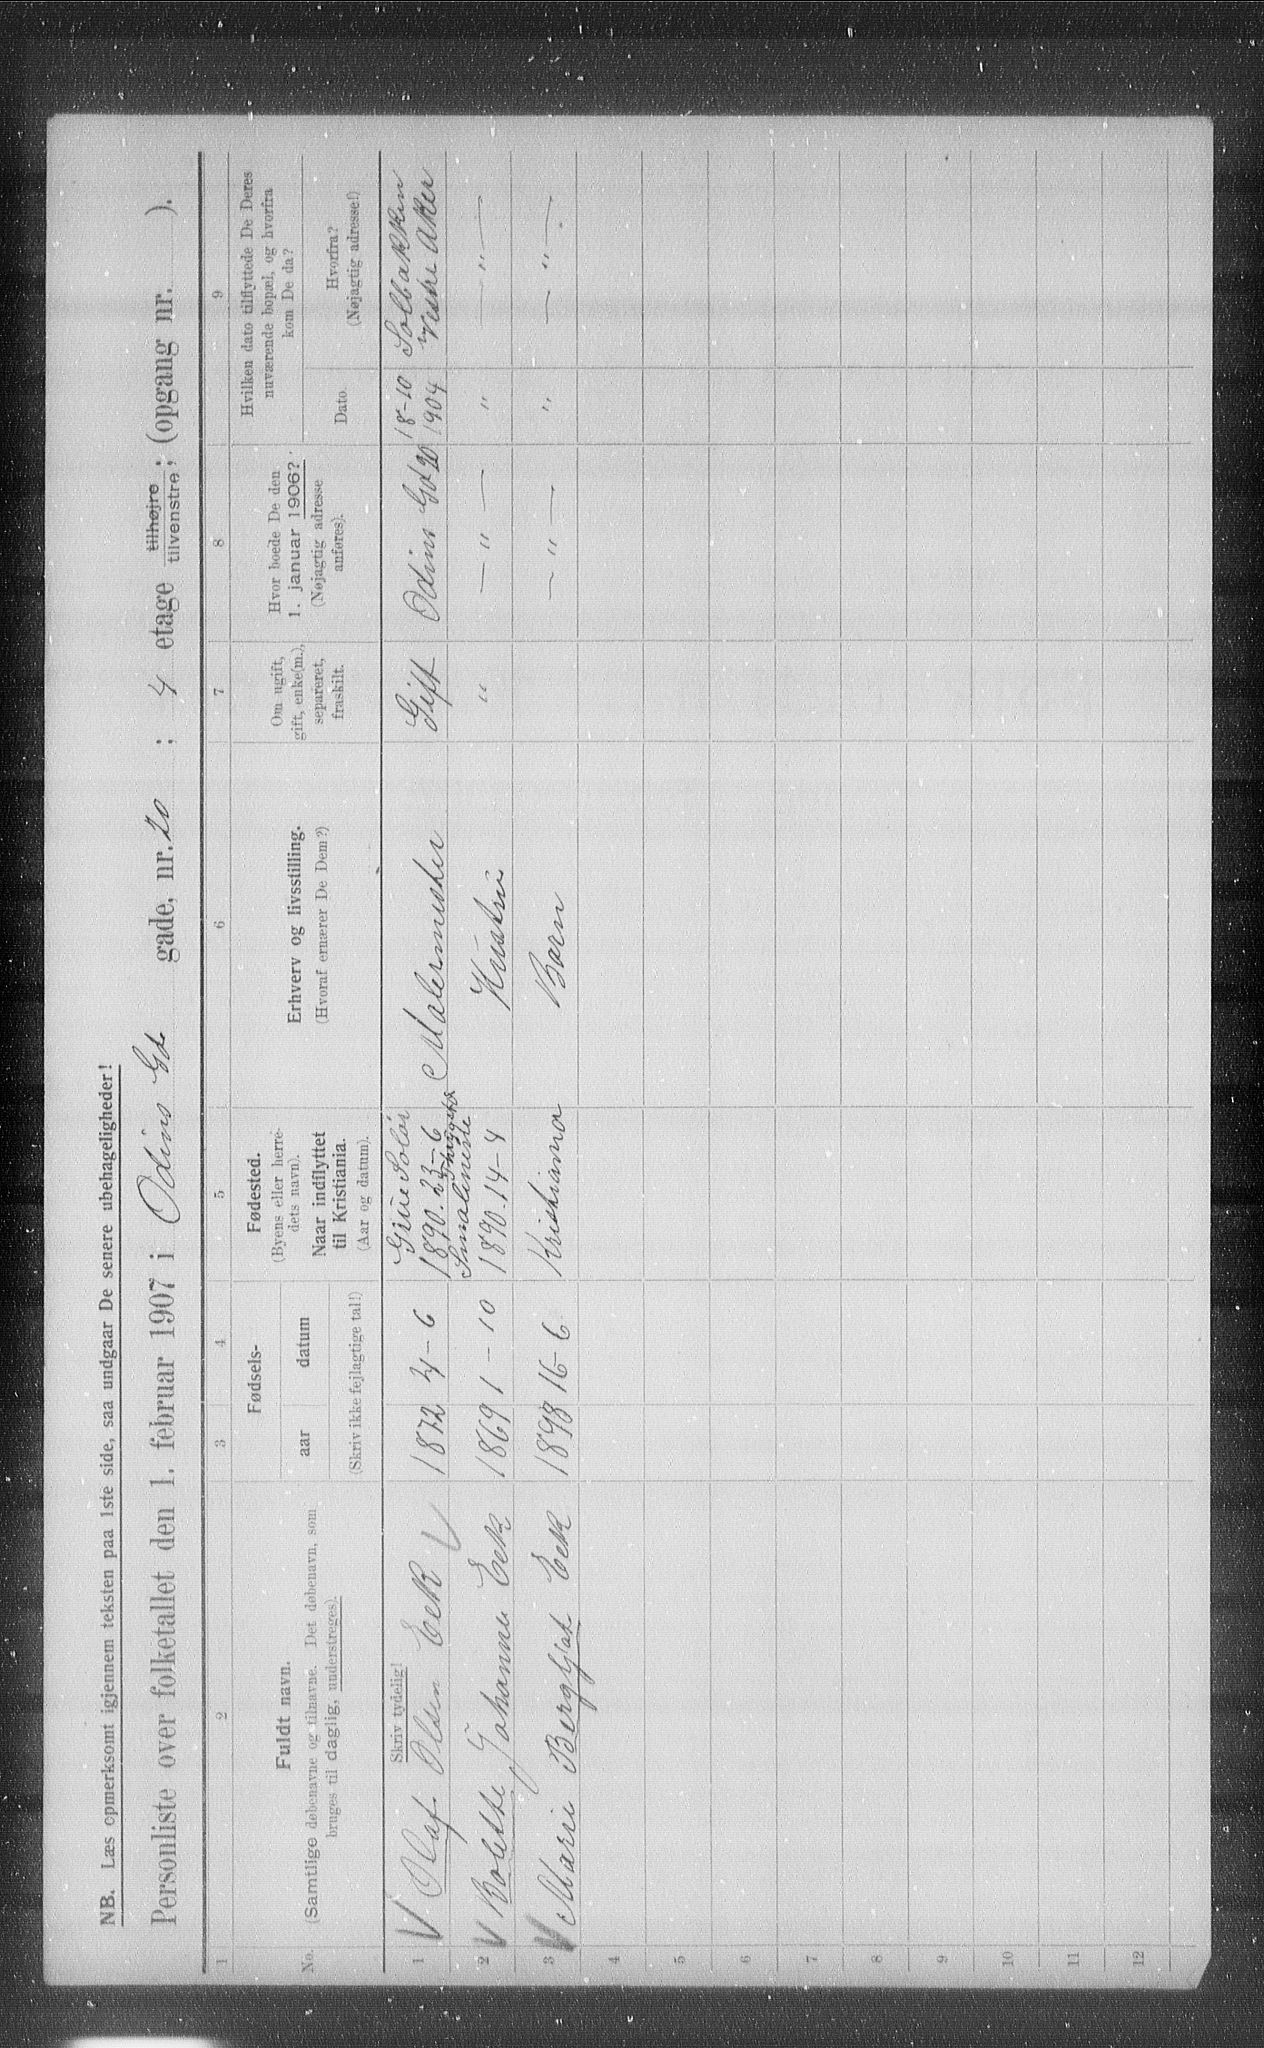 NB. Læs opmerksomt igjennem teksten paa 1ste side, saa undgaar De senere ubehageligheder!
Personliste over folketallet den 1. februar 1907 i Odins Gd. gade, nr. 20 ; 4 etage tilhøjre / tilvenstre ; (opgang nr. ).
1 2 3 4 5 6 7 8 9
No.
Fuldt navn.
(Samtlige døbenavne og tilnavne. Det døbenavn, som
bruges til daglig, understreges).
Fødsels-
aar datum
(Skriv ikke fejlagtige tal!)
Fødested.
(Byens eller herre-
dets navn).
Naar indflyttet
til Kristiania.
(Aar og datum).
Erhverv og livsstilling.
(Hvoraf ernærer De Dem?)
Om ugift,
gift, enke(m.),
separeret,
fraskilt.
Hvor boede De den
1. januar 1906?
(Nøjagtig adresse
anføres).
Hvilken dato tilflyttede De Deres
nuværende bopæl, og hvorfra
kom De da?
Dato.
Hvorfra?
(Nøjagtig adresse!)
Skriv tydelig!
1 Olaf Olsen Eek 1872 4-6 Grue Solør 1890. 23-6 Malermester Gift Odins Gd 20 18-10 1904 Solbakken Vestre Aker
2 Bolette Johanne Eek 1869 1-10 Smalenene 1890. 14-4 Hustru " — " — " — " —
3 Marie Bergljot Eek 1898 16-6 Kristiania Barn — " — " — " —
4
5
6
7
8
9
10
11
12